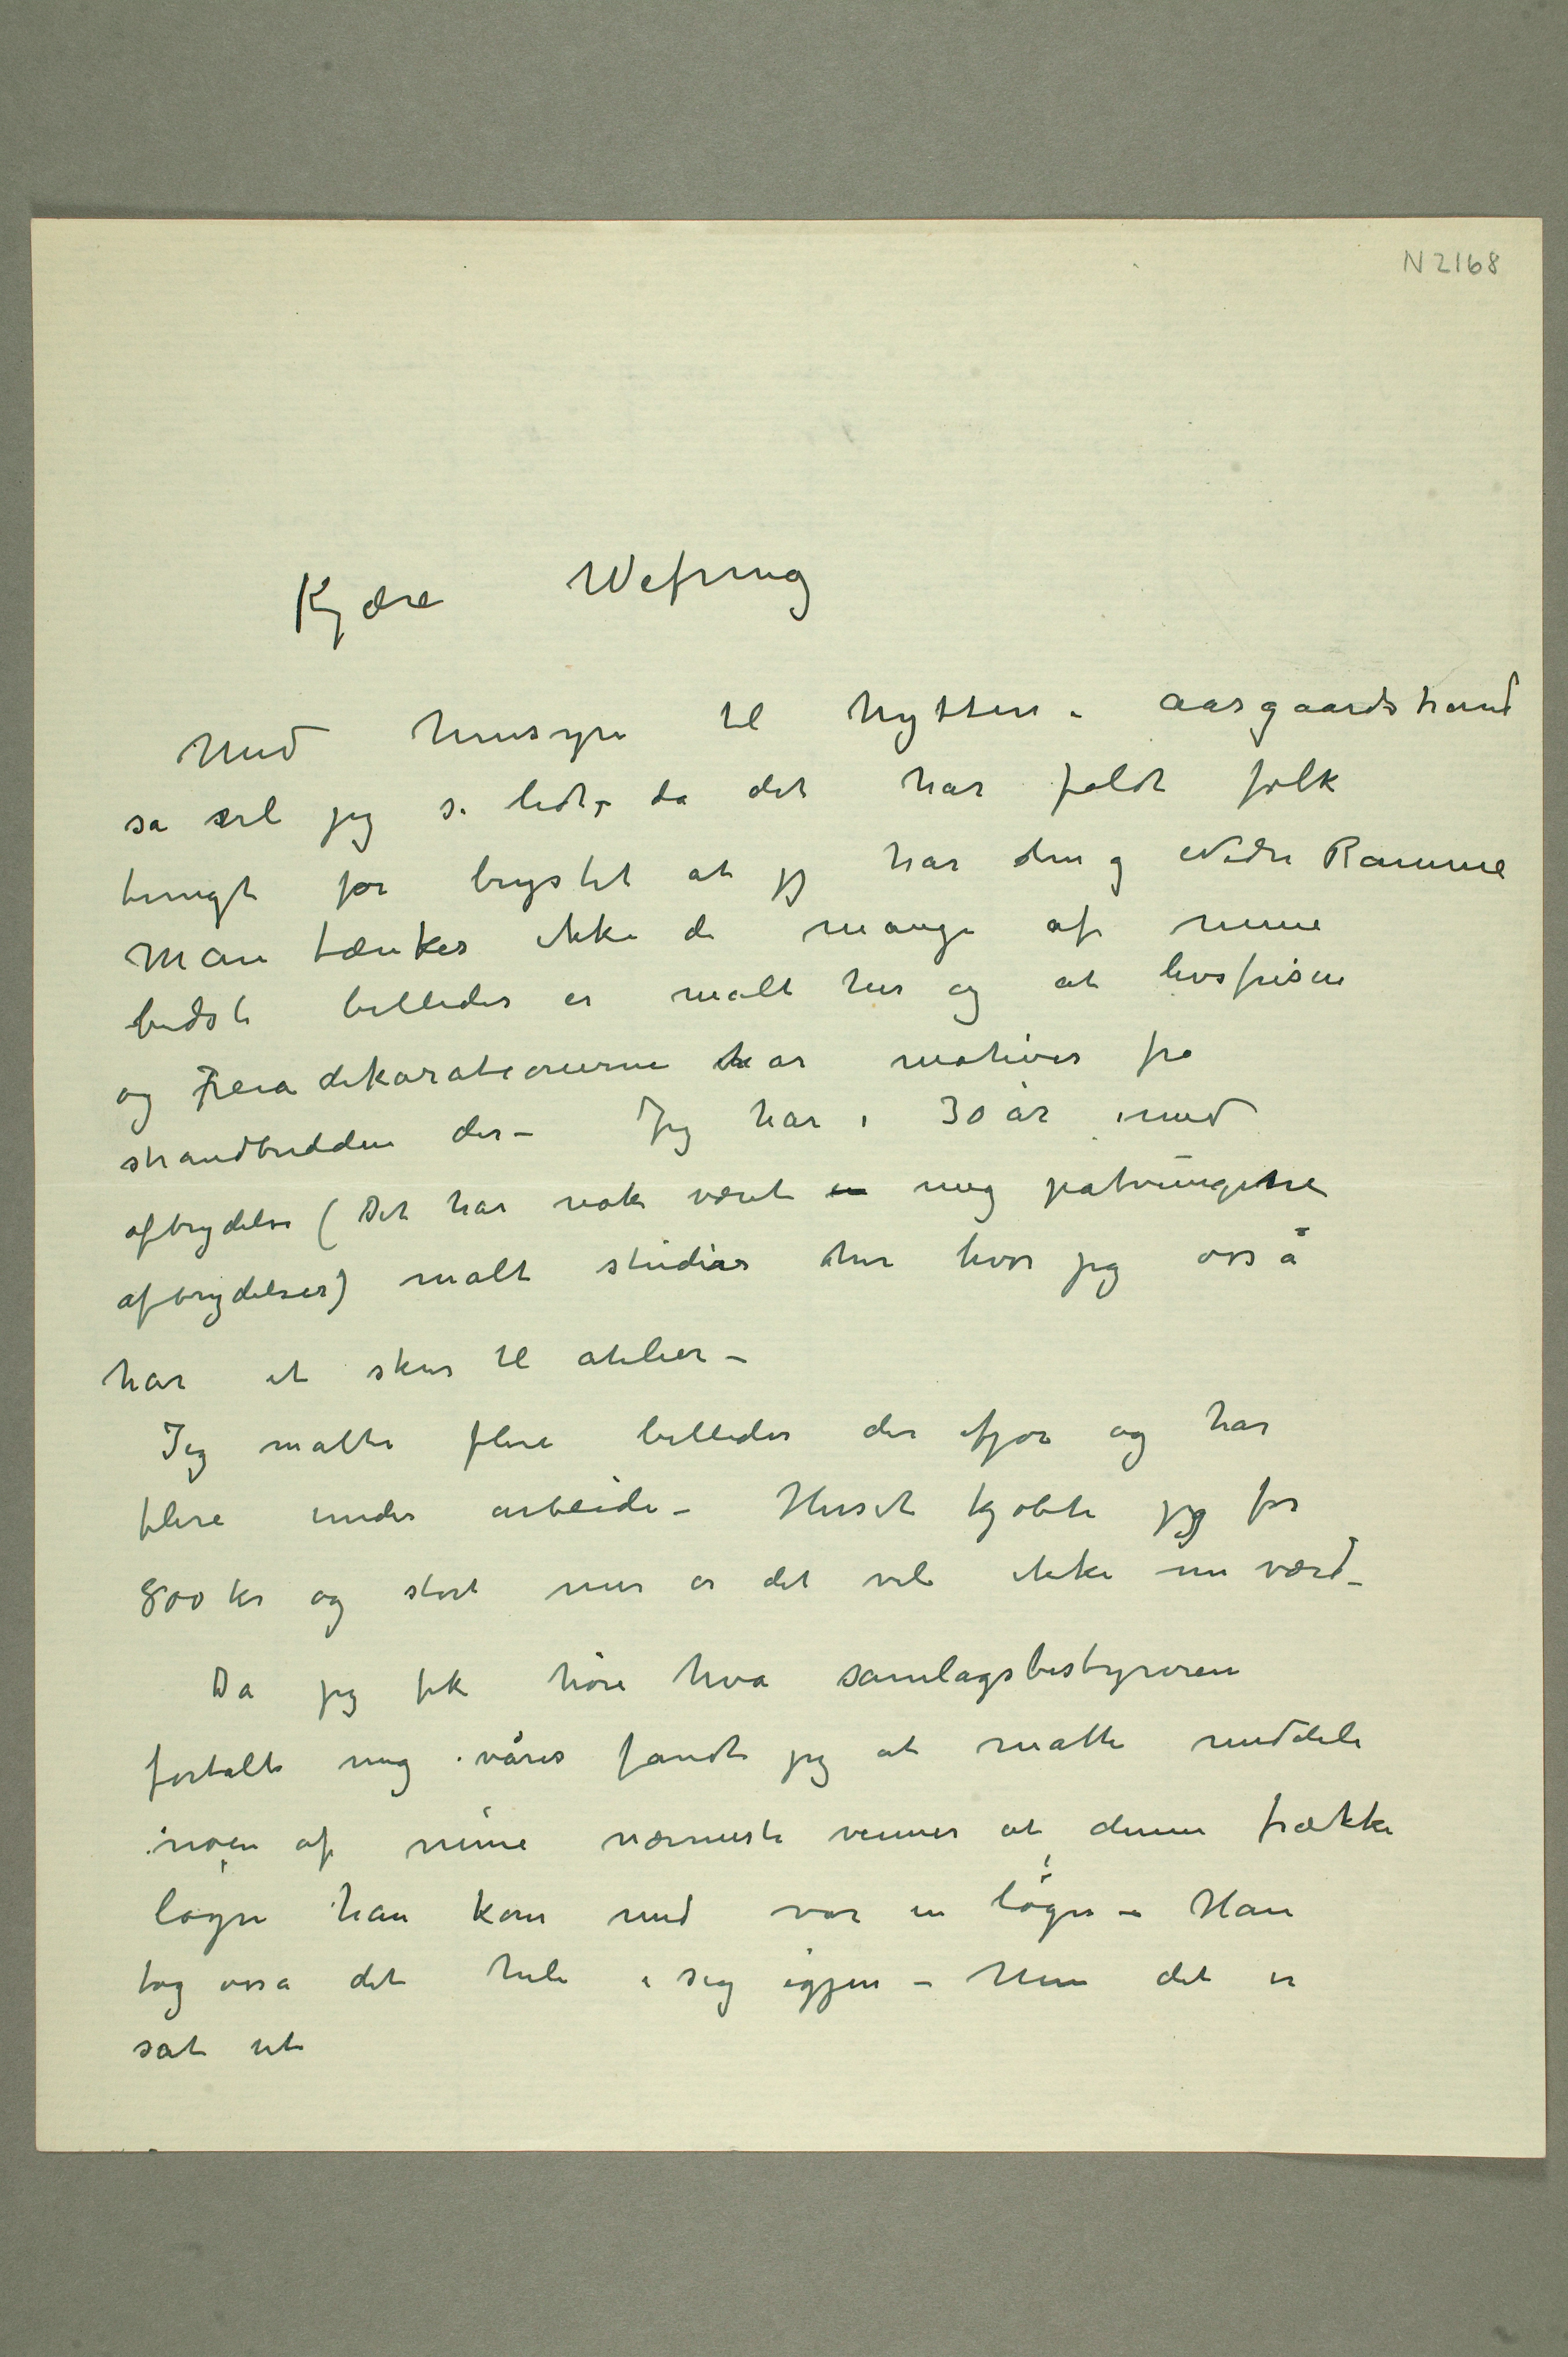 N 2168
Kjære Wefring
Med hensyn til hytten i Aasgaardstrand
så vil jeg si lidt, da det har faldt folk
tungt for brystet at jeg har den og Nedre Ramme
Man tænker ikke de mange af mine
bedste billeder er malt her og at livsfrisen
og Freiadekorationerne har motiver fra
strandbredden der – Jeg har i 30 år med
afbrydelse (Det har nok været mig påtvungene
afbrydelser) malt studier der hvor jeg osså
har et skur til atelier –
Jeg malte flere billeder der ifjor og har
flere under arbeide – Huset kjøbte jeg for
800 kr og stort mer er det vel ikke nu værd –
Da jeg fik høre hva samlagsbestyreren
fortalte mig ivåres fandt jeg at måtte meddele
noen af mine nærmeste venner at denne frække
løgn han kom med var en løgn – Han
tog osså det hele i sig igjen – Men det er
sat ut